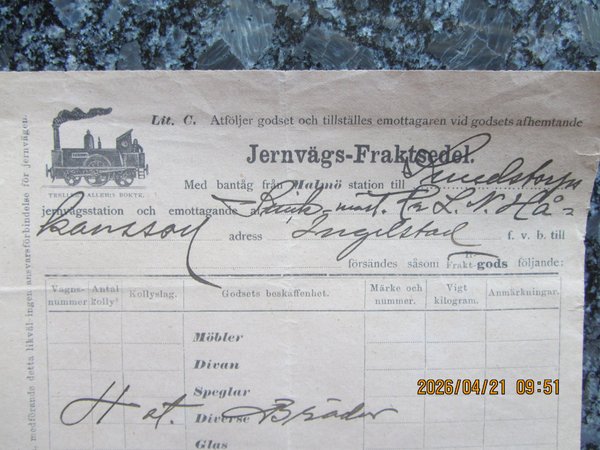 Lit. C. Atföljer godset och tillställes emottagaren vid godsets afhemtande
Jernvägs-Fraktsedel.
TRELLEB. ALLEHS BOKTR.
Med bantåg från Malmö station till Smedstorps
jernvägsstation och emottagande af L. N. Hå-
kansson adress Ingelstad f. v. b. till
försändes såsom Il- Frakt- gods följande:
Vagns-nummer Antal kolly Kollyslag. Godsets beskaffenhet. Märke och nummer. Vigt kilogram. Anmärkningar.
Möbler
Divan
Speglar
4 st. Diverse Bräder
Glas
medförande detta likväl ingen ansvarsförbindelse för jernvägen.
2026/04/21 09:51